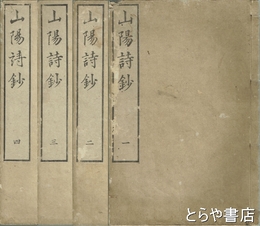 山陽詩鈔 四
山陽詩鈔 三
山陽詩鈔 二
山陽詩鈔 一
とらや書店